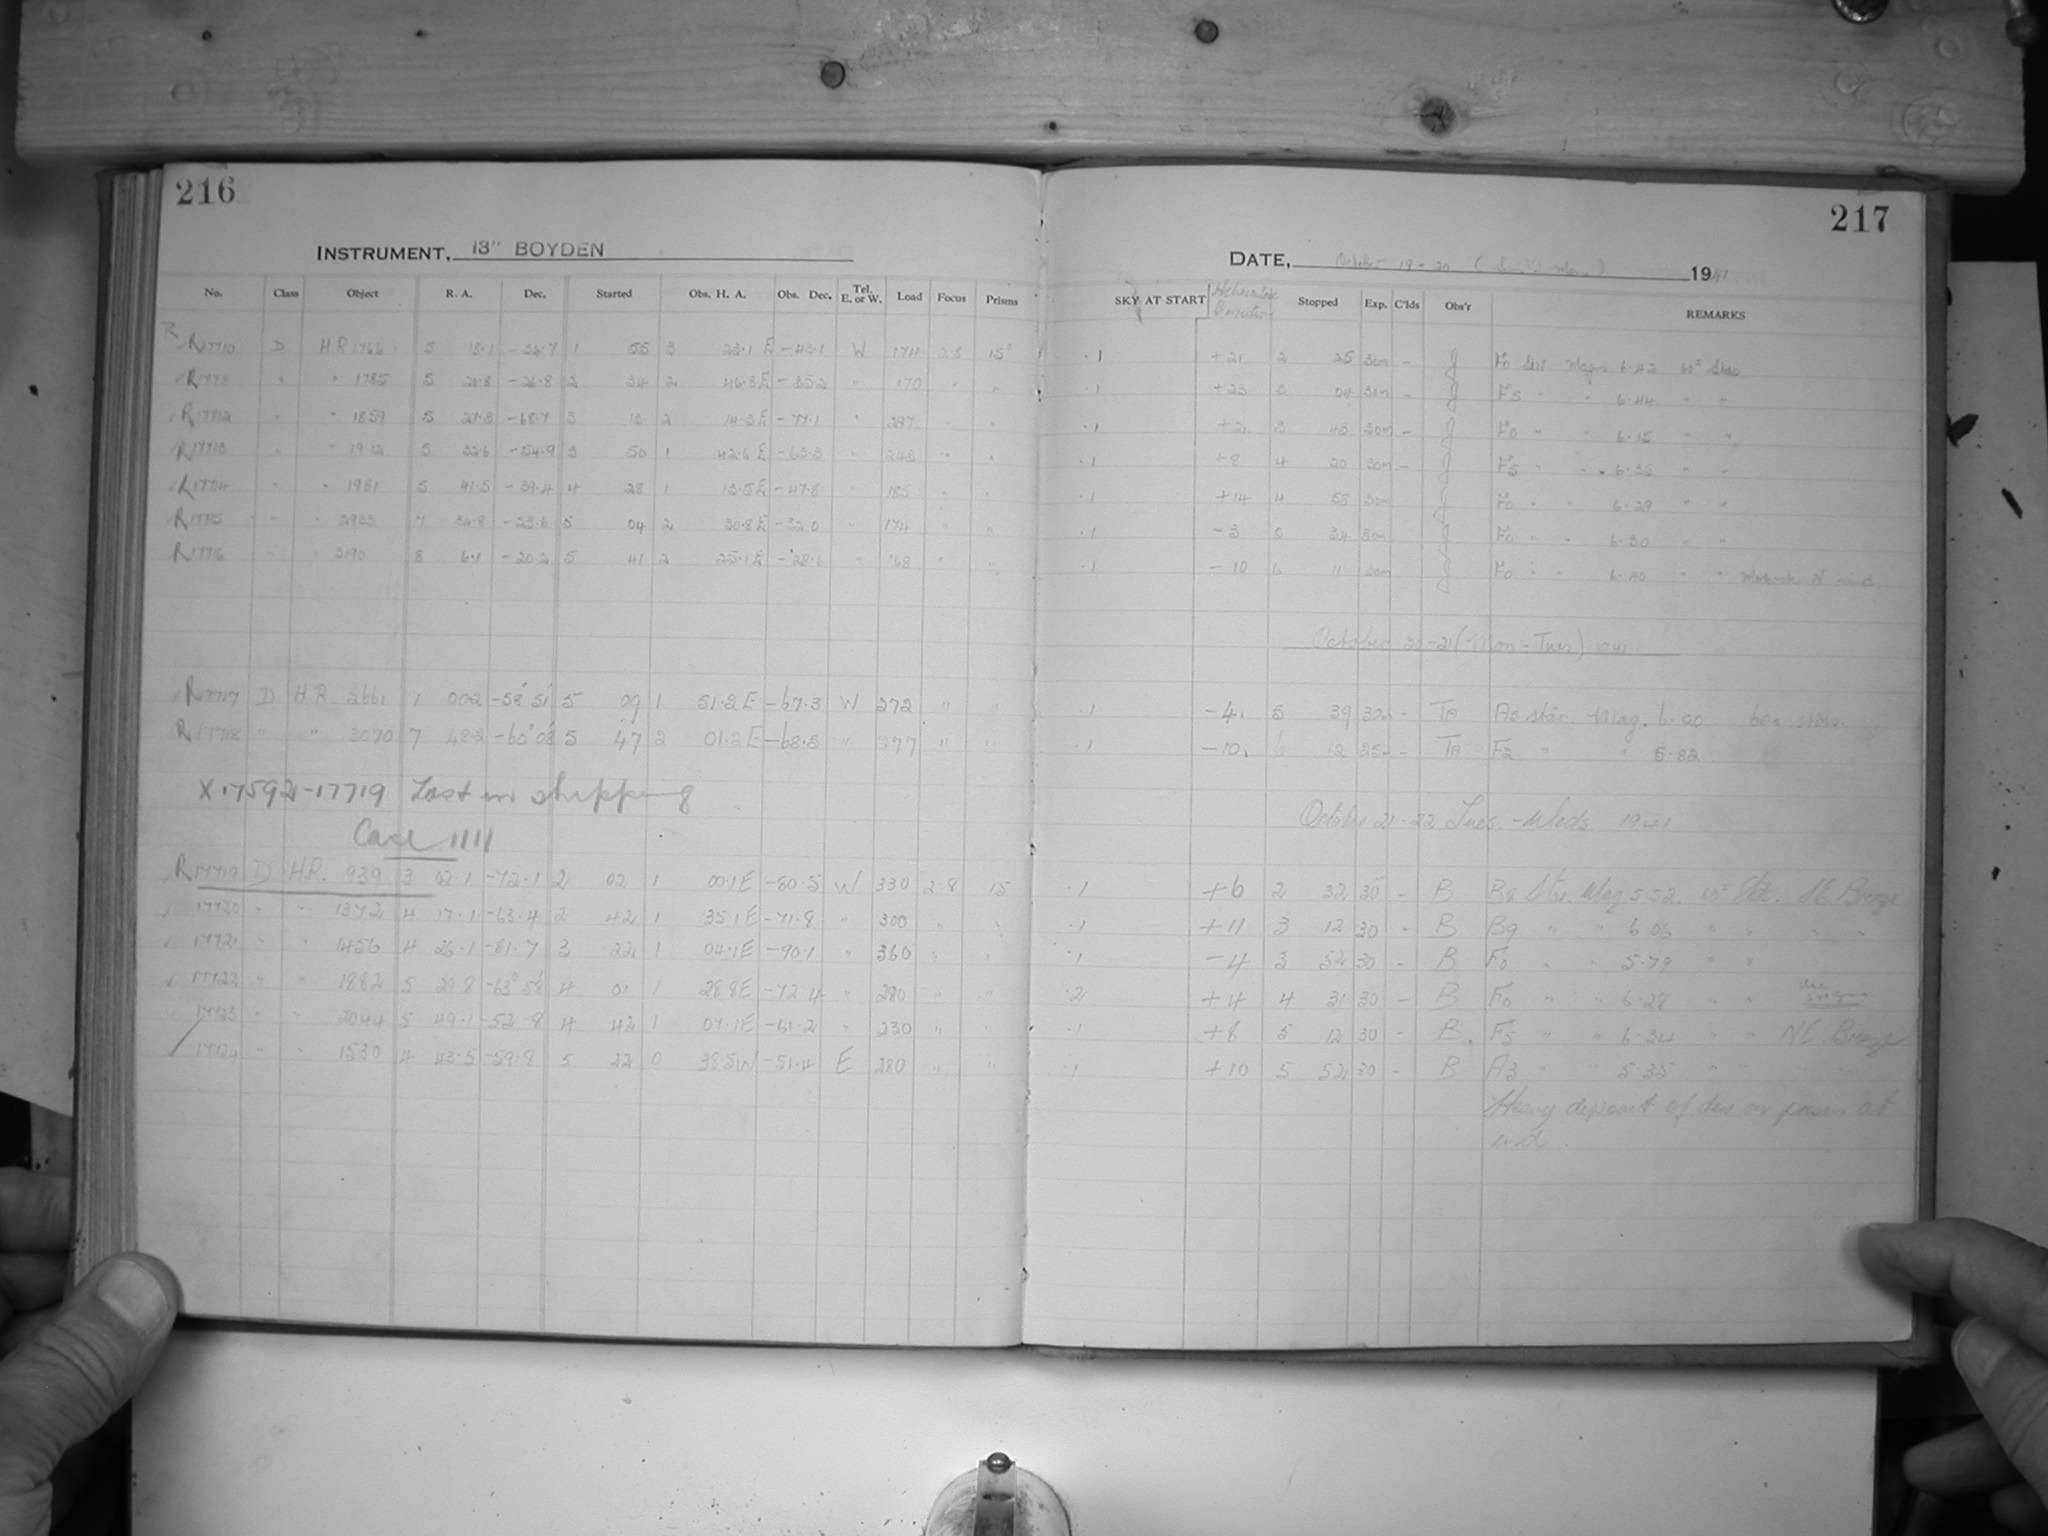 216
INSTRUMENT, 13" BOYDEN
No. Class Object R. A. Dec. Started Obs. H. A. Obs. Dec. Tel. E. or W. Load Focus Prisms
R17710 D HR 1766 5 18.1 -34.7 1 55 3 23.1 E -43.1 W 174 2.8 15°
R17711 " " 1785 5 20.8 -26.8 2 34 2 46.8 E -35.2 " 170 " "
R17712 " " 1859 5 27.3 -68.7 3 13 2 14.3 E -77.1 " 297 " "
R17713 " " 1912 5 32.6 -54.9 3 50 1 42.6 E -63.3 " 243 " "
R17714 " " 1981 5 41.5 -39.4 4 28 1 13.5 E -47.8 " 185 " "
R17715 " " 2933 7 34.8 -23.6 5 04 2 30.8 E -32.0 " 174 " "
R17716 " " 3190 8 6.1 -20.2 5 41 2 25.1 E -28.6 " 168 " "
R17717 D HR 2661 7 00.2 -58° 51' 5 09 1 51.2 E -67.3 W 272 " "
R17718 " " 3070 7 48.2 -60° 08' 5 47 2 01.2 E -68.5 " 277 " "
X 17592-17719 Lost in shipping
Case 1111
R17719 D HR. 939 3 02.1 -72.1 2 02 1 00.1 E -80.5 W 330 2.8 15
17720 " " 1372 4 17.1 -63.4 2 42 1 35.1 E -71.8 " 300 " "
17721 " " 1456 4 26.1 -81.7 3 22 1 04.1 E -90.1 " 360 " "
17722 " " 1882 5 29.8 -63° 58' 4 01 1 28.8 E -72.4 " 280 " "
17723 " " 2044 5 49.1 -52.8 4 42 1 07.1 E -61.2 " 230 " "
17724 " " 1530 4 43.5 -59.8 5 22 0 38.5 W -51.4 E 280 " "
217
DATE, October 19-20 1941
SKY AT START Stopped Exp. C'lds Obs'r REMARKS
.1 +21 2 25 30m - J F0 Star. Magn. 6.42 60s Stds.
.1 +23 3 04 30m - J F5 " " 6.44 " "
.1 3 43 30m - J F0 " " 6.15 " "
.1 +8 4 20 30m - J F5 " " 6.35 " "
.1 +14 4 58 30m J F0 " " 6.29 " "
.1 -3 5 34 30m J F0 " " 6.30 " "
.1 -10 6 11 30m J F0 " " 6.40 " " Moderate N wind
October 20-21 (Mon-Tues) 1941
.1 -4 5 39 30m - TA A3 star. Mag. 6.00 60s stds.
.1 -10 6 12 25m - TA F2 " " 5.82
October 21-22 Tues. - Weds 1941
.1 +6 2 32 30 - B B8 Star. Mag 5.52. 60s Stds. SE Breeze
.1 +11 3 12 30 - B B9 " " 6.06 " " " "
.1 -4 3 52 30 - B F0 " " 5.79 " "
.2 +4 4 31 30 - B F0 " " 6.28 " "
.1 +8 5 12 30 - B F5 " " 6.34 " " NE. Breeze
.1 +10 5 52 30 - B A3 " " 5.35 " "
Heavy deposit of dew on prism at
end.